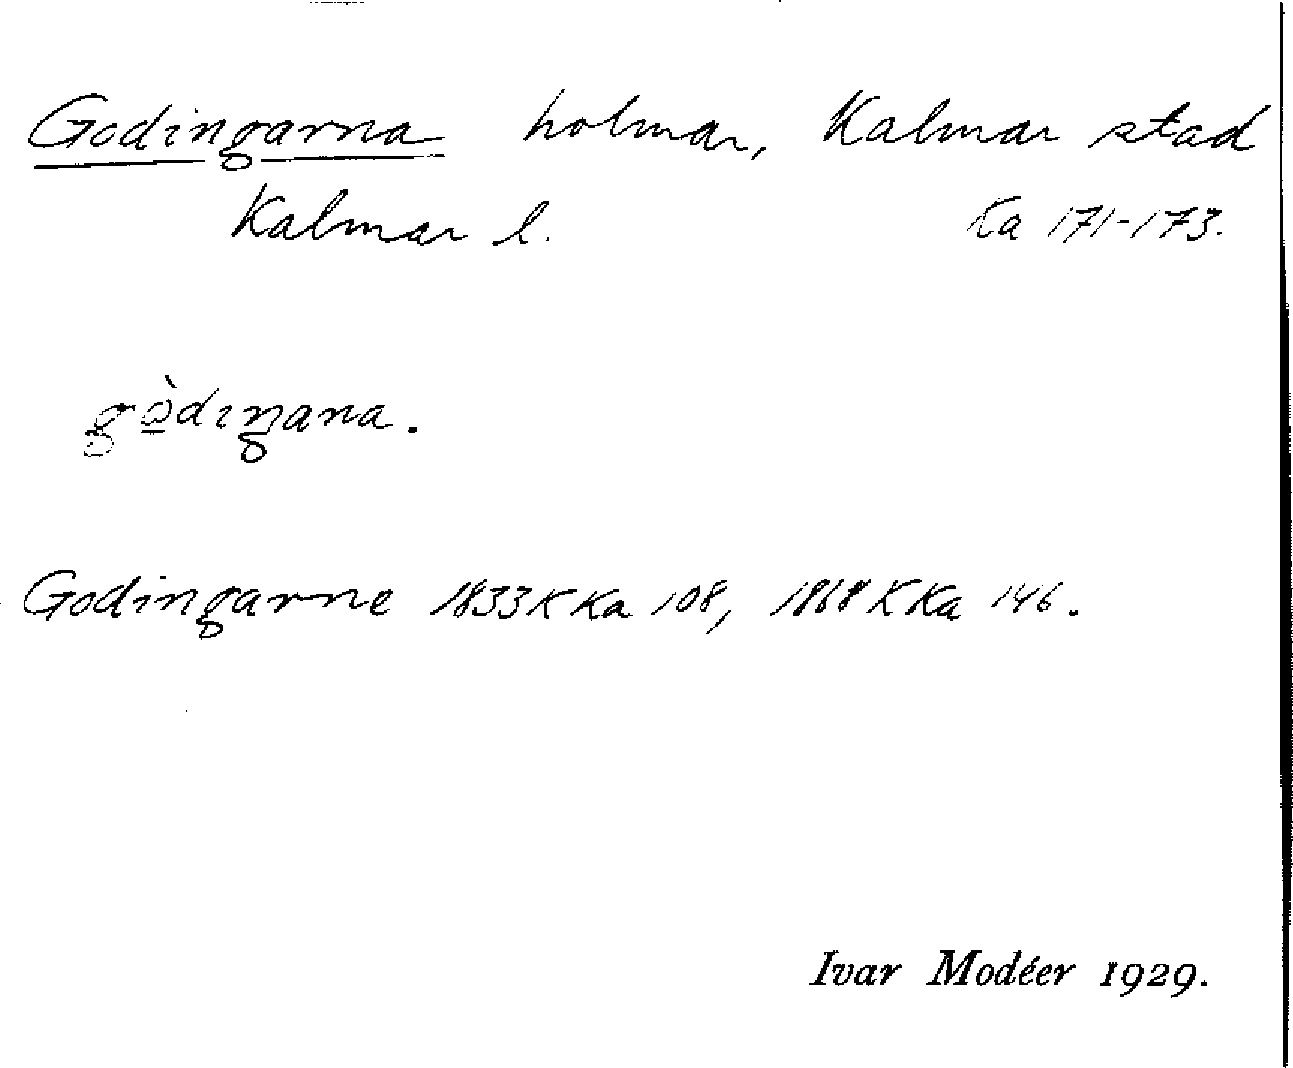 Godingarna holmar, Kalmar stad
Kalmar l. Ka 171-173.
gò̱dıŋana.
Godingarne 1833 K Ka 108, 1868 K Ka 146.
Ivar Modéer 1929.